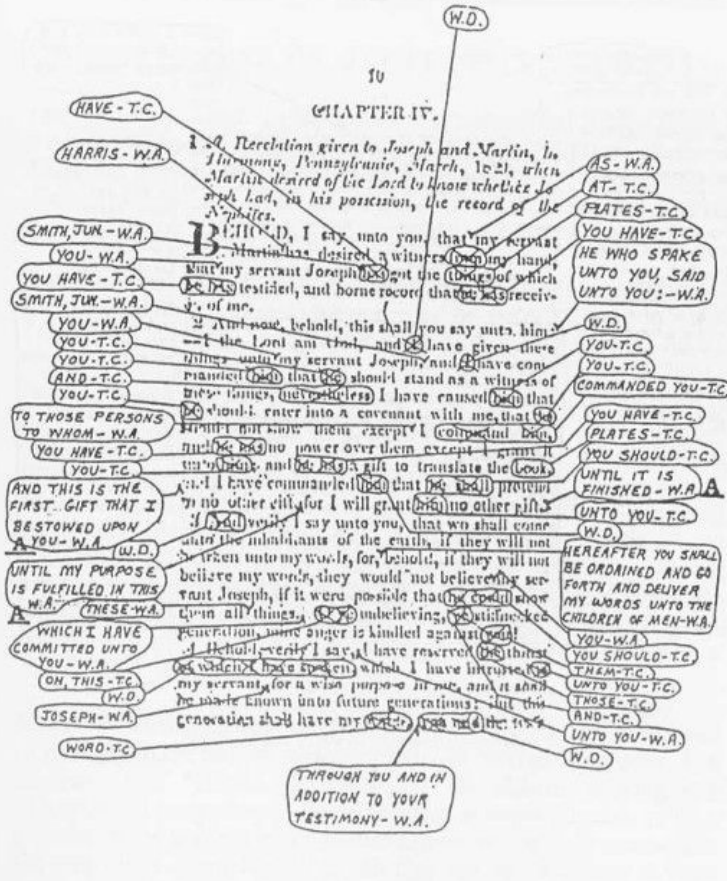 W.D.
10
CHAPTER IV.
1 A Revelation given to Joseph and Martin, in
Harmony, Pennsylvania, March, 1829, when
Martin desired of the Lord to know whether Jo-
seph had, in his possession, the record of the
Nephites.
BEHOLD, I say unto you, that my servant
Martin has desired a witness from my hand,
that my servant Joseph has got the things of which
he has testified, and borne record that he has receiv-
ed of me.
2 And now, behold, this shall you say unto him:
—I the Lord am God, and I have given these
things unto my servant Joseph, and I have com-
manded him that he should stand as a witness of
these things, nevertheless I have caused him that
he should enter into a covenant with me, that he
should not show them except I command him,
and he has no power over them except I grant it
unto him; and he has a gift to translate the book,
and I have commanded him that he shall pretend
to no other gift, for I will grant him no other gift.
3 And verily I say unto you, that wo shall come
unto the inhabitants of the earth, if they will not
be taken unto my words, for, behold, if they will not
believe my words, they would not believe my ser-
vant Joseph, if it were possible that he could show
them all things. O ye unbelieving, ye stiffnecked
generation, mine anger is kindled against you!
4 Behold, verily I say, I have reserved the things
of which I have spoken, which I have intrusted to
my servant, for a wise purpose in me, and it shall
be made known unto future generations: But this
generation shall have my words, yea and the
HAVE-T.C.
HARRIS-W.A.
SMITH, JUN.-W.A.
YOU-W.A.
YOU HAVE-T.C.
SMITH, JUN.-W.A.
YOU-W.A.
YOU-T.C.
YOU-T.C.
AND-T.C.
YOU-T.C.
TO THOSE PERSONS
TO WHOM-W.A.
YOU HAVE-T.C.
YOU-T.C.
AND THIS IS THE
FIRST GIFT THAT I
BESTOWED UPON
YOU-W.A.
A
W.D.
UNTIL MY PURPOSE
IS FULFILLED IN THIS
W.A.
THESE-W.A.
A
WHICH I HAVE
COMMITTED UNTO
YOU-W.A.
OH, THIS-T.C.
W.D.
JOSEPH-W.A.
WORD-T.C
AS-W.A.
AT-T.C.
PLATES-T.C.
YOU HAVE-T.C.
HE WHO SPAKE
UNTO YOU, SAID
UNTO YOU:-W.A.
W.D.
YOU-T.C.
YOU-T.C.
COMMANDED YOU-T.C.
YOU HAVE-T.C.
PLATES-T.C.
YOU SHOULD-T.C.
UNTIL IT IS
FINISHED-W.A
A
UNTO YOU-T.C.
W.D.
HEREAFTER YOU SHALL
BE ORDAINED AND GO
FORTH AND DELIVER
MY WORDS UNTO THE
CHILDREN OF MEN-W.A.
YOU-W.A.
YOU SHOULD-T.C.
THEM-T.C.
UNTO YOU-T.C.
THOSE-T.C.
AND-T.C.
UNTO YOU-W.A.
W.D.
THROUGH YOU AND IN
ADDITION TO YOUR
TESTIMONY-W.A.